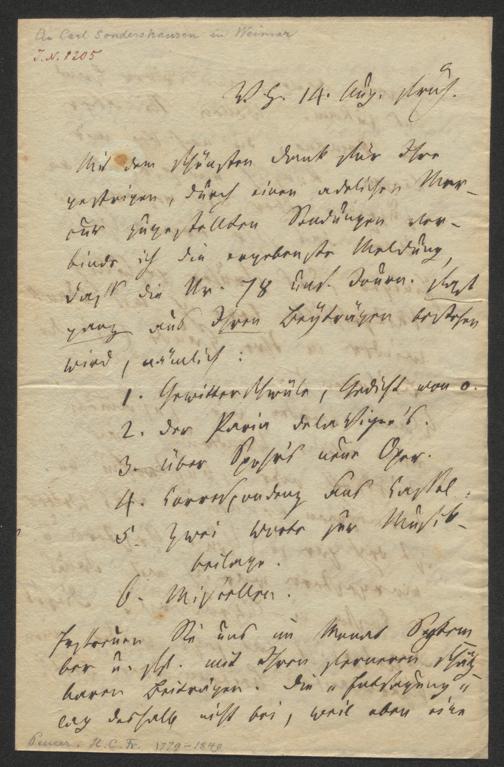 An Carl Sondershausen in Weimar
I.N. 1205
V. H. 14. Aug. früh.
Mit dem schönsten Dank für Ihre
gestrigen, durch einen adelichen Mer-
cur zugestellten Sendungen ver-
binde ich die ergebenste Meldung,
daß die Nr. 78 uns. Journ. fast
ganz aus Ihren Beyträgen bestehen
wird, nämlich:
1. Gewitterschwüle, Gedicht von o.
2. Der Paria delaVigne's.
3. über Spohr's neue Oper.
4. Correspondenz aus Cassel.
5. Zwei Worte zur Musik-
beilage.
6. Miscellen.
Erfreuen Sie uns im Monat Septem
ber u. mit Ihren ferneren schätz
baren Beiträgen. Die "Entsagung"
lag deshalb nicht bei, weil eben eine
Peucer, H. C. Fr. 1779-1849